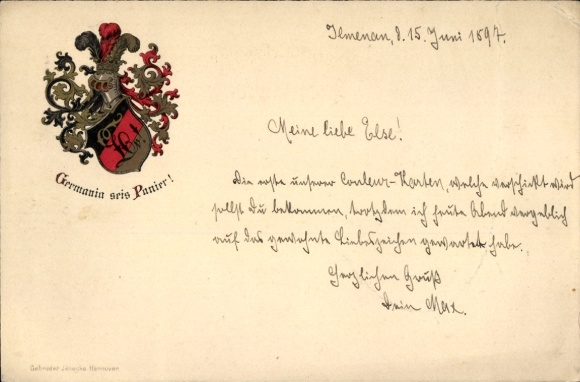 Ilmenau, d. 15. Juni 1897.
Meine liebe Else!
Germania seis Panier!
Die erste unserer Couleur-Karten, welche verschickt wird
sollst Du bekommen, trotzdem ich heute Abend vergeblich
auf das gewohnte Liebeszeichen gewartet habe.
Herzlichen Gruß
Dein Max.
Gebrüder Jänecke, Hannover